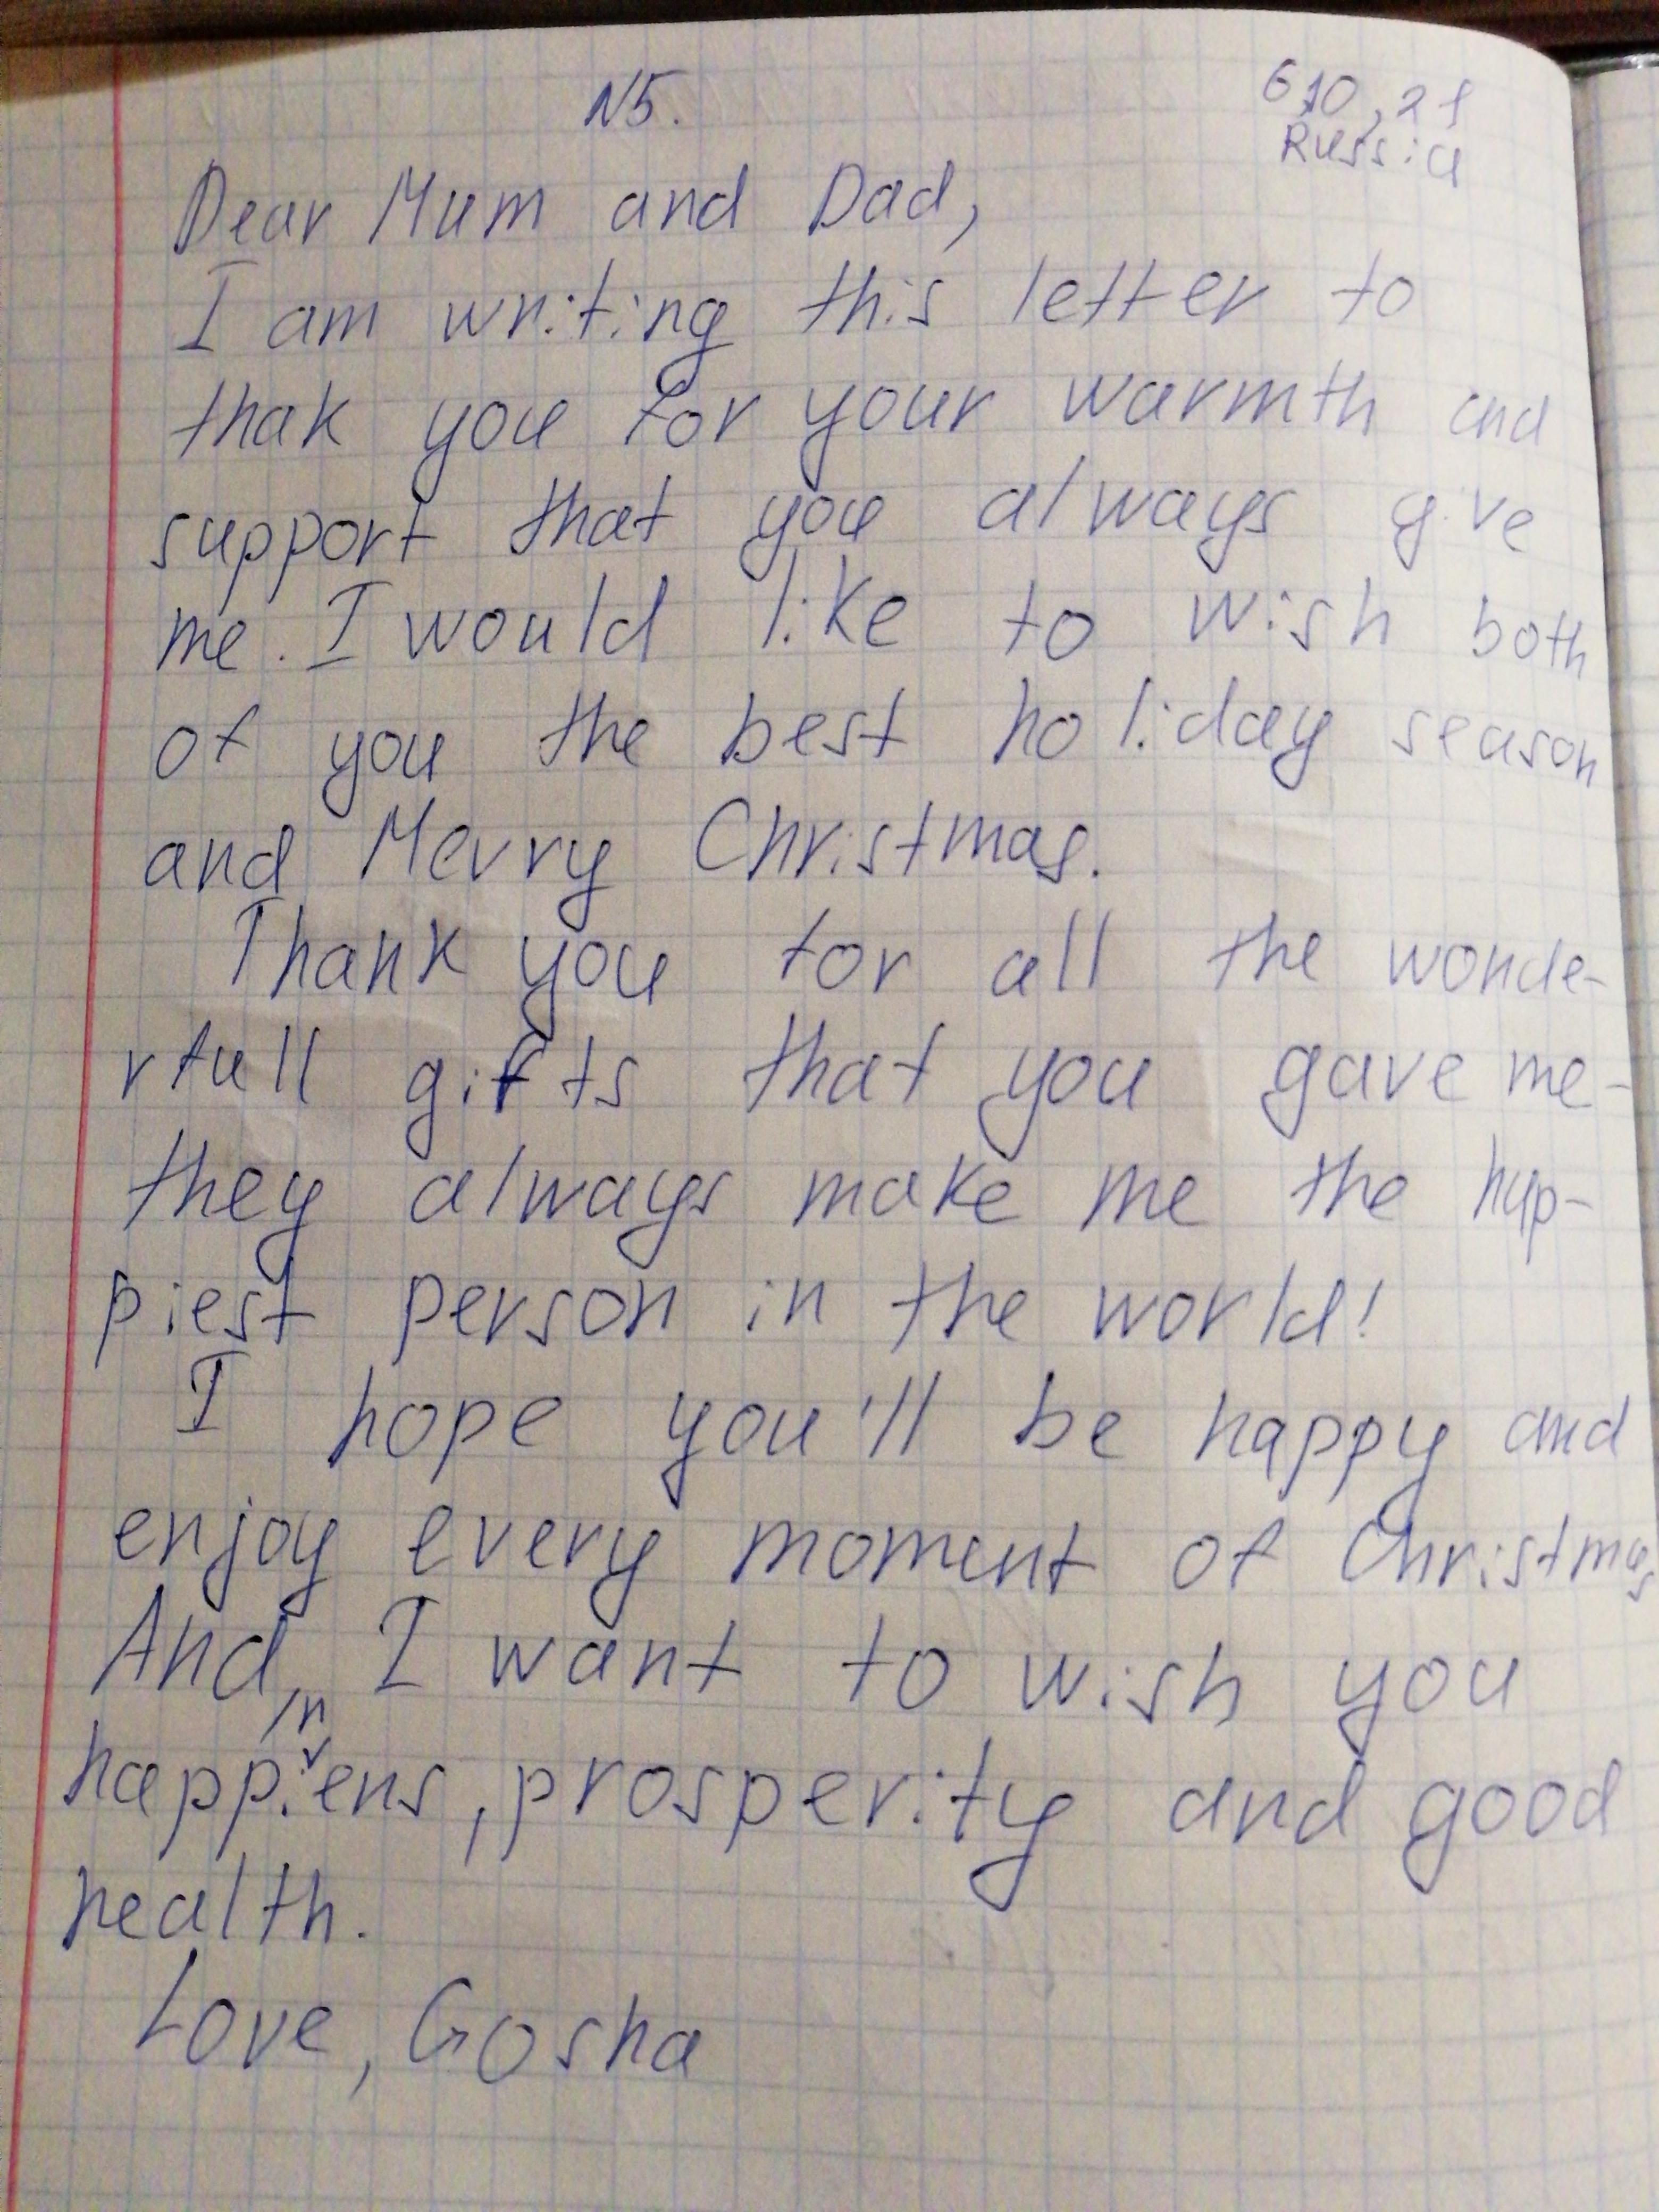 N5.
6.10.21
Russia
Dear Mum and Dad,
I am writing this letter to
thak you for your warmth and
support that you always give
me. I would like to wish both
of you the best holiday season
and Merry Christmas.
Thank you for all the wonde-
rfull gifts that you gave me-
they always make me the hap-
piest person in the world!
I hope you'll be happy and
enjoy every moment of Christmas
And, I want to wish you
in
happiens, prosperity and good
health.
Love, Gosha